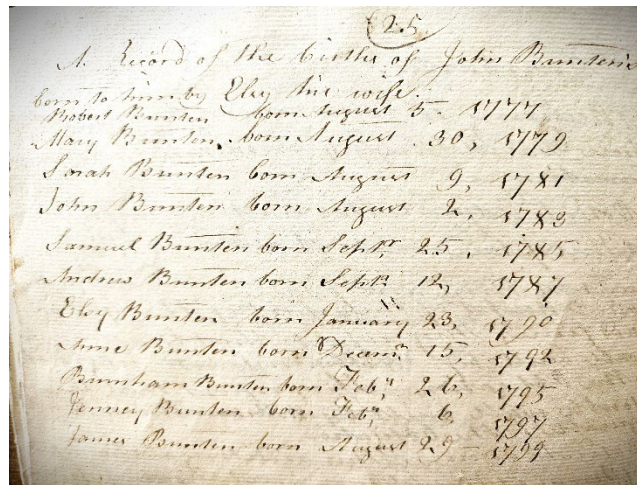 25
A. Record of the births of John Bunten's
born to him by Elsy his wife.
Robert Bunten born August 5. 1777
Mary Bunten, born August 30, 1779
Sarah Bunten born August 9, 1781
John Bunten born August 2, 1783
Samuel Bunten born Septr. 25, 1785
Andrew Bunten born Septr. 12, 1787
Elsy Bunten born January 23, 1790
Anne Bunten born Decemr. 15, 1792
Burnham Bunten born Feby. 26, 1795
Jenney Bunten born Feby. 6, 1797
James Bunten born August 29 - 1799